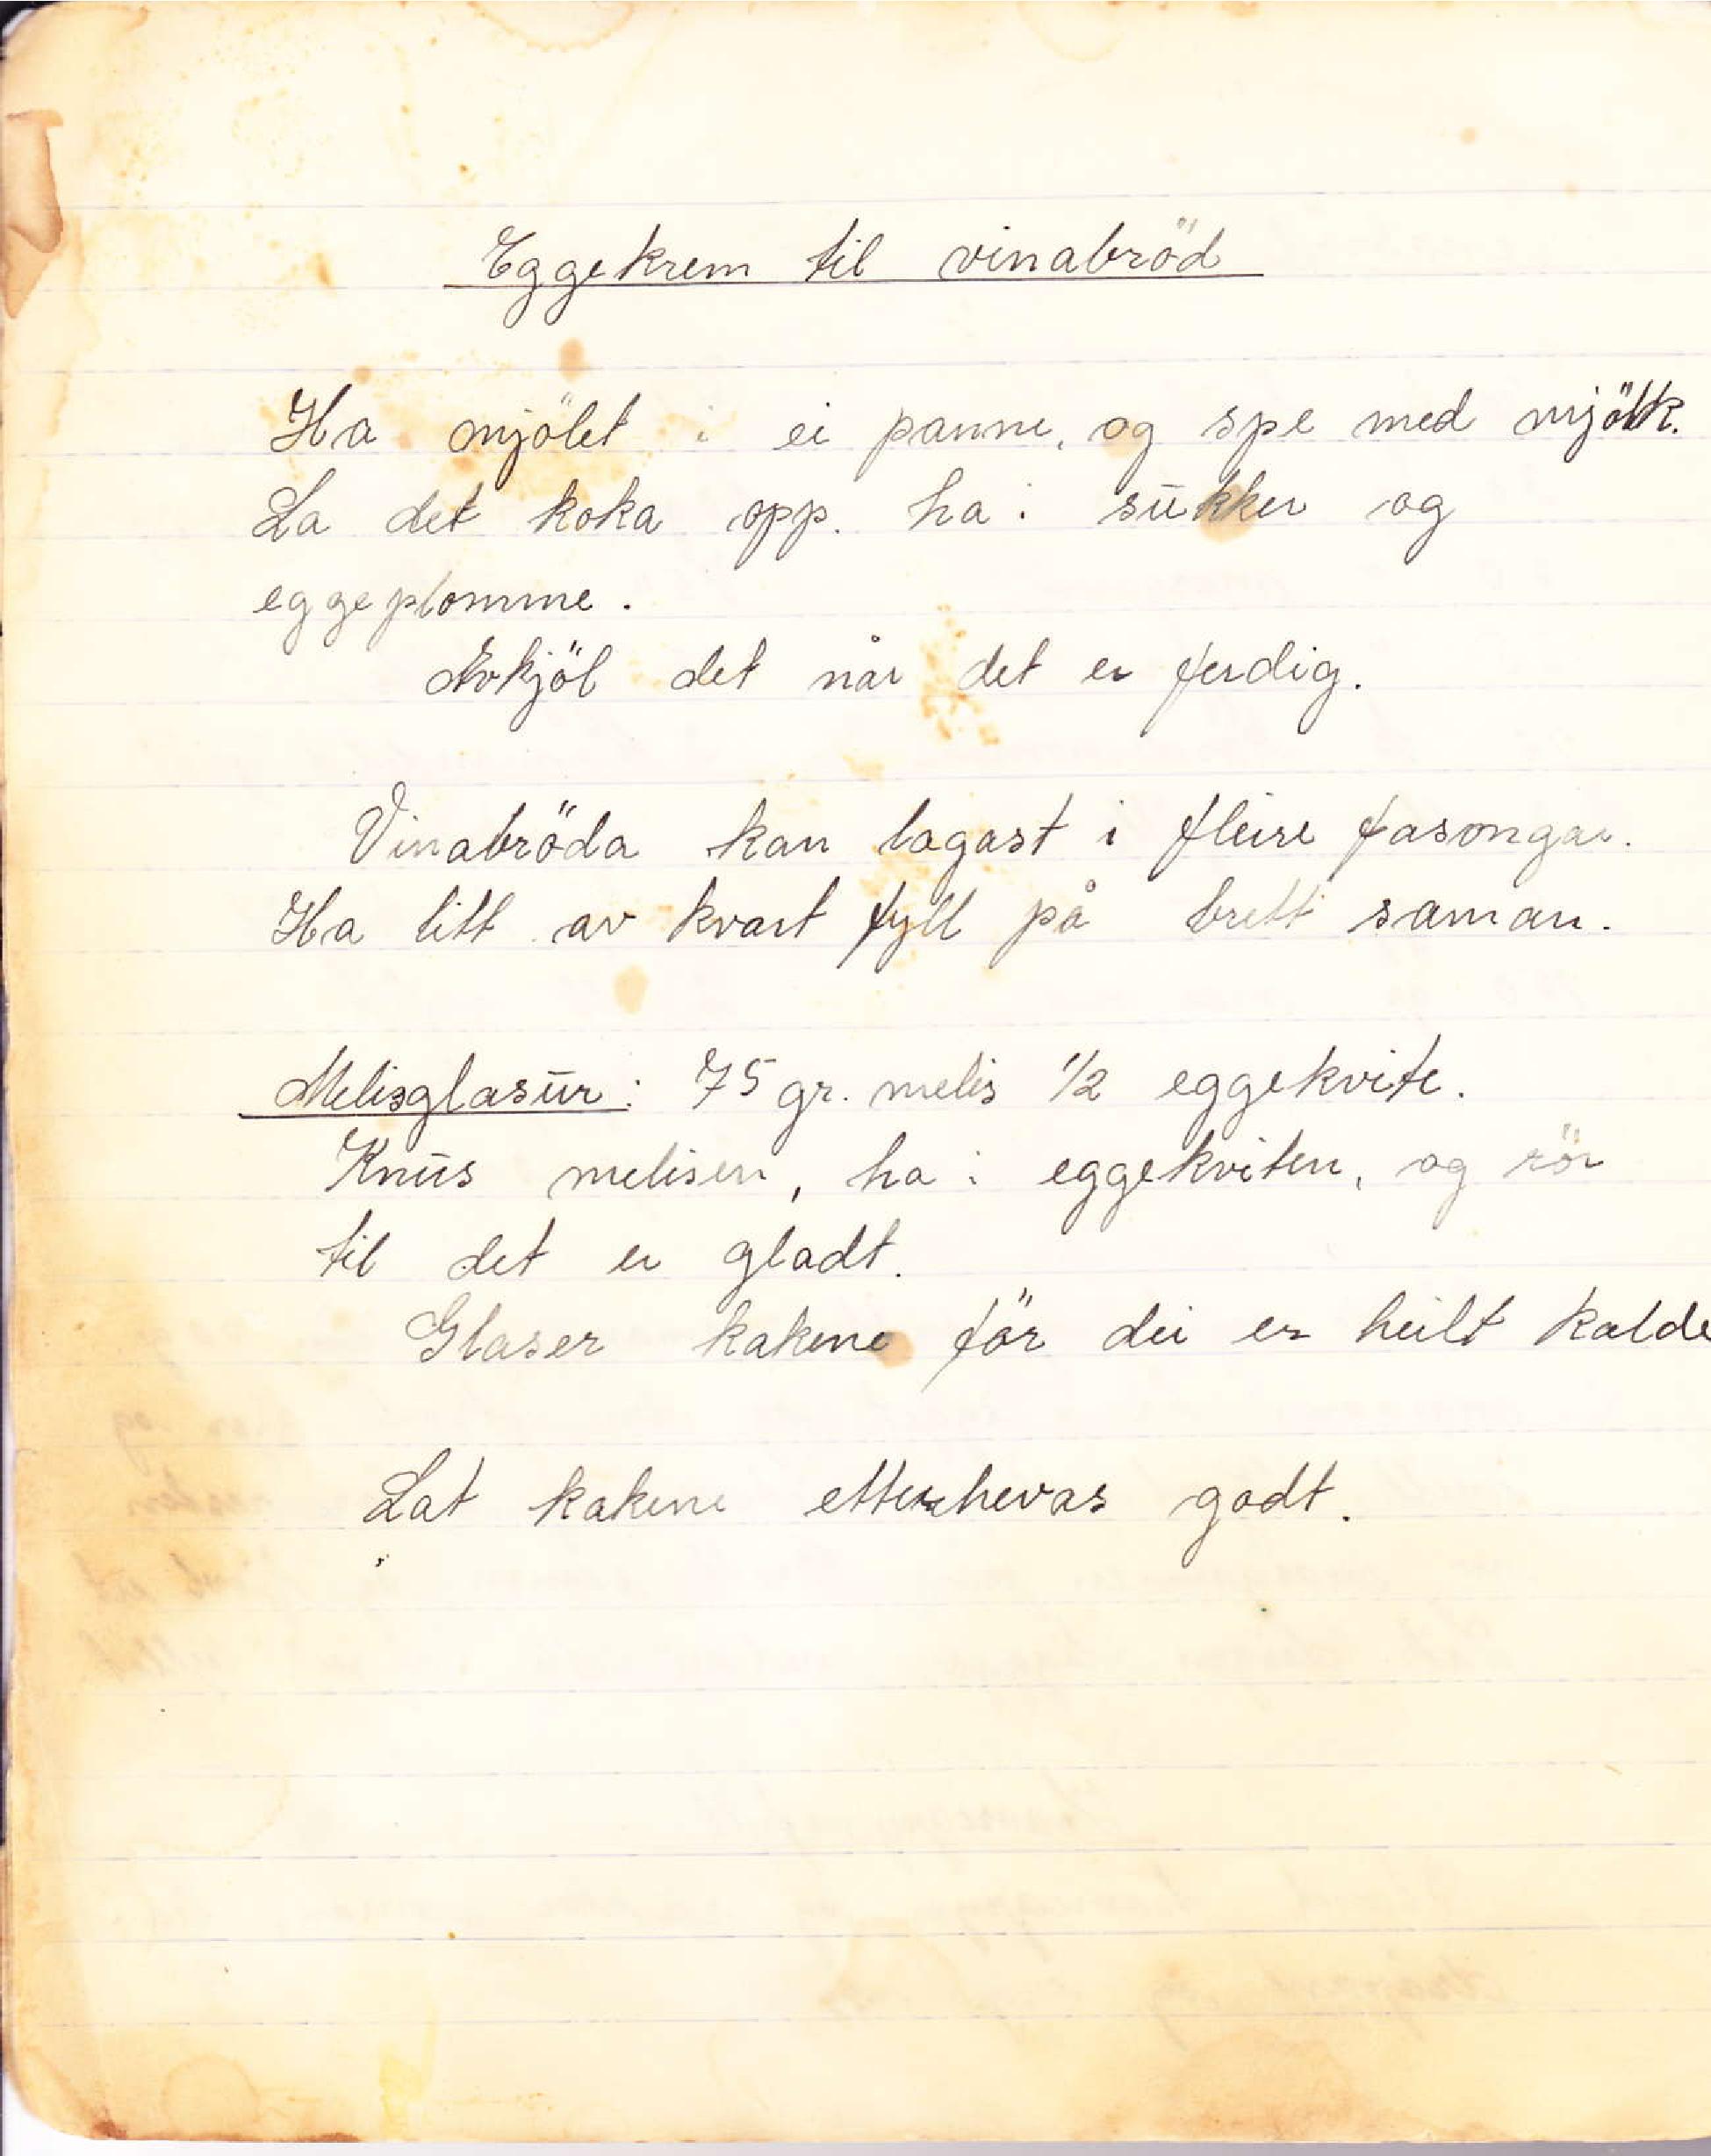 Eggekrem til vinabröd
Ha mjölet i ei panne, og spe med mjölk.
La det koka opp. ha i sukker og
eggeplomme.
Avkjöl det når det er ferdig.
Vinabröda kan lagast i fleire fasongar.
Ha litt av kvart fyll på brett saman.
Melisglasur: 75 gr. melis 1/2 eggekvite.
Knus melisen, ha i eggekviten, og rör
til det er gladt.
Glaser kakene för dei er heilt kalde
Lat kakene etterhevas godt.